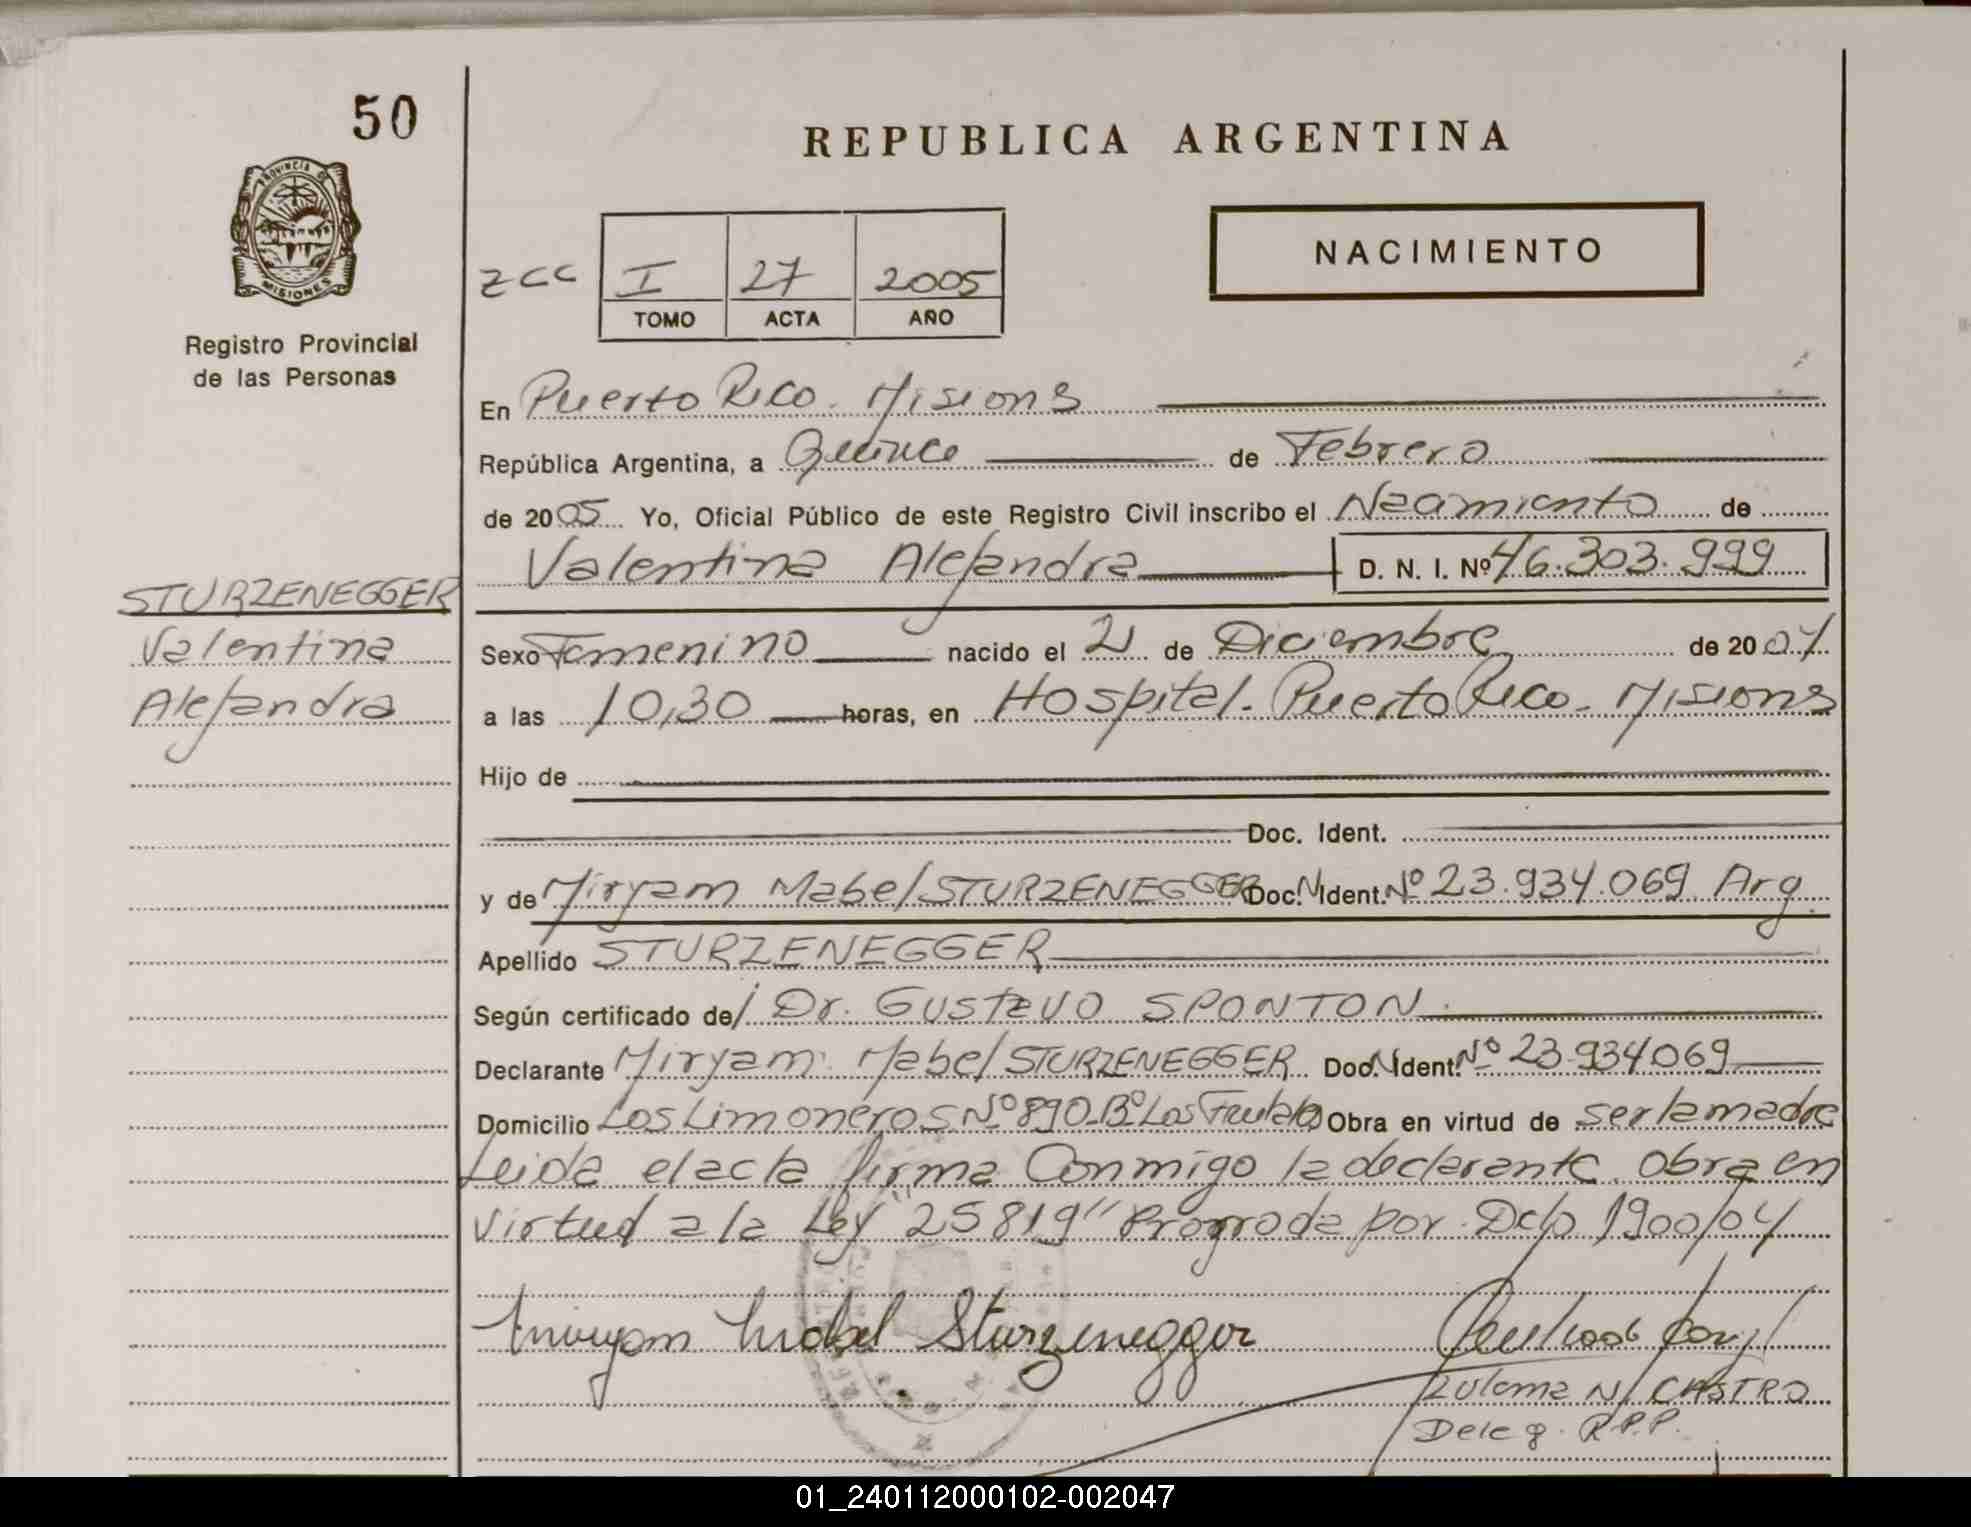 50
REPUBLICA ARGENTINA
NACIMIENTO
PROVINCIA DE
MISIONES
Registro Provincial
de las Personas
ZCC I 27 2005
TOMO ACTA AÑO
En Puerto Rico. Misiones
República Argentina, a Quince de Febrero
de 2005 Yo, Oficial Público de este Registro Civil inscribo el Nacimiento de
Valentina Alejandra D. N. I. Nº 46.303.999
STURZENEGGER
Valentina
Alejandra
Sexo Femenino nacido el 21 de Diciembre de 2004
a las 10,30 horas, en Hospital. Puerto Rico. Misiones
Hijo de
Doc. Ident.
y de Miryam Mabel STURZENEGGER Doc. N Ident. Nº 23.934.069 Arg.
Apellido STURZENEGGER
Según certificado de/ Dr. Gustavo SPONTON
Declarante Miryam Mabel STURZENEGGER Doc. N Ident. Nº 23.934069
Domicilio Los Limoneros Nº 890-Bº Los Frutales Obra en virtud de ser la madre
Leida el acta firma Conmigo la declarante. Obra en
virtud a la Ley "25819" Progroda por Dcto 1900/04
Miryam Mabel Sturzenegger
Zulema N. CASTRO
Deleg. R.P.P.
01_240112000102-002047